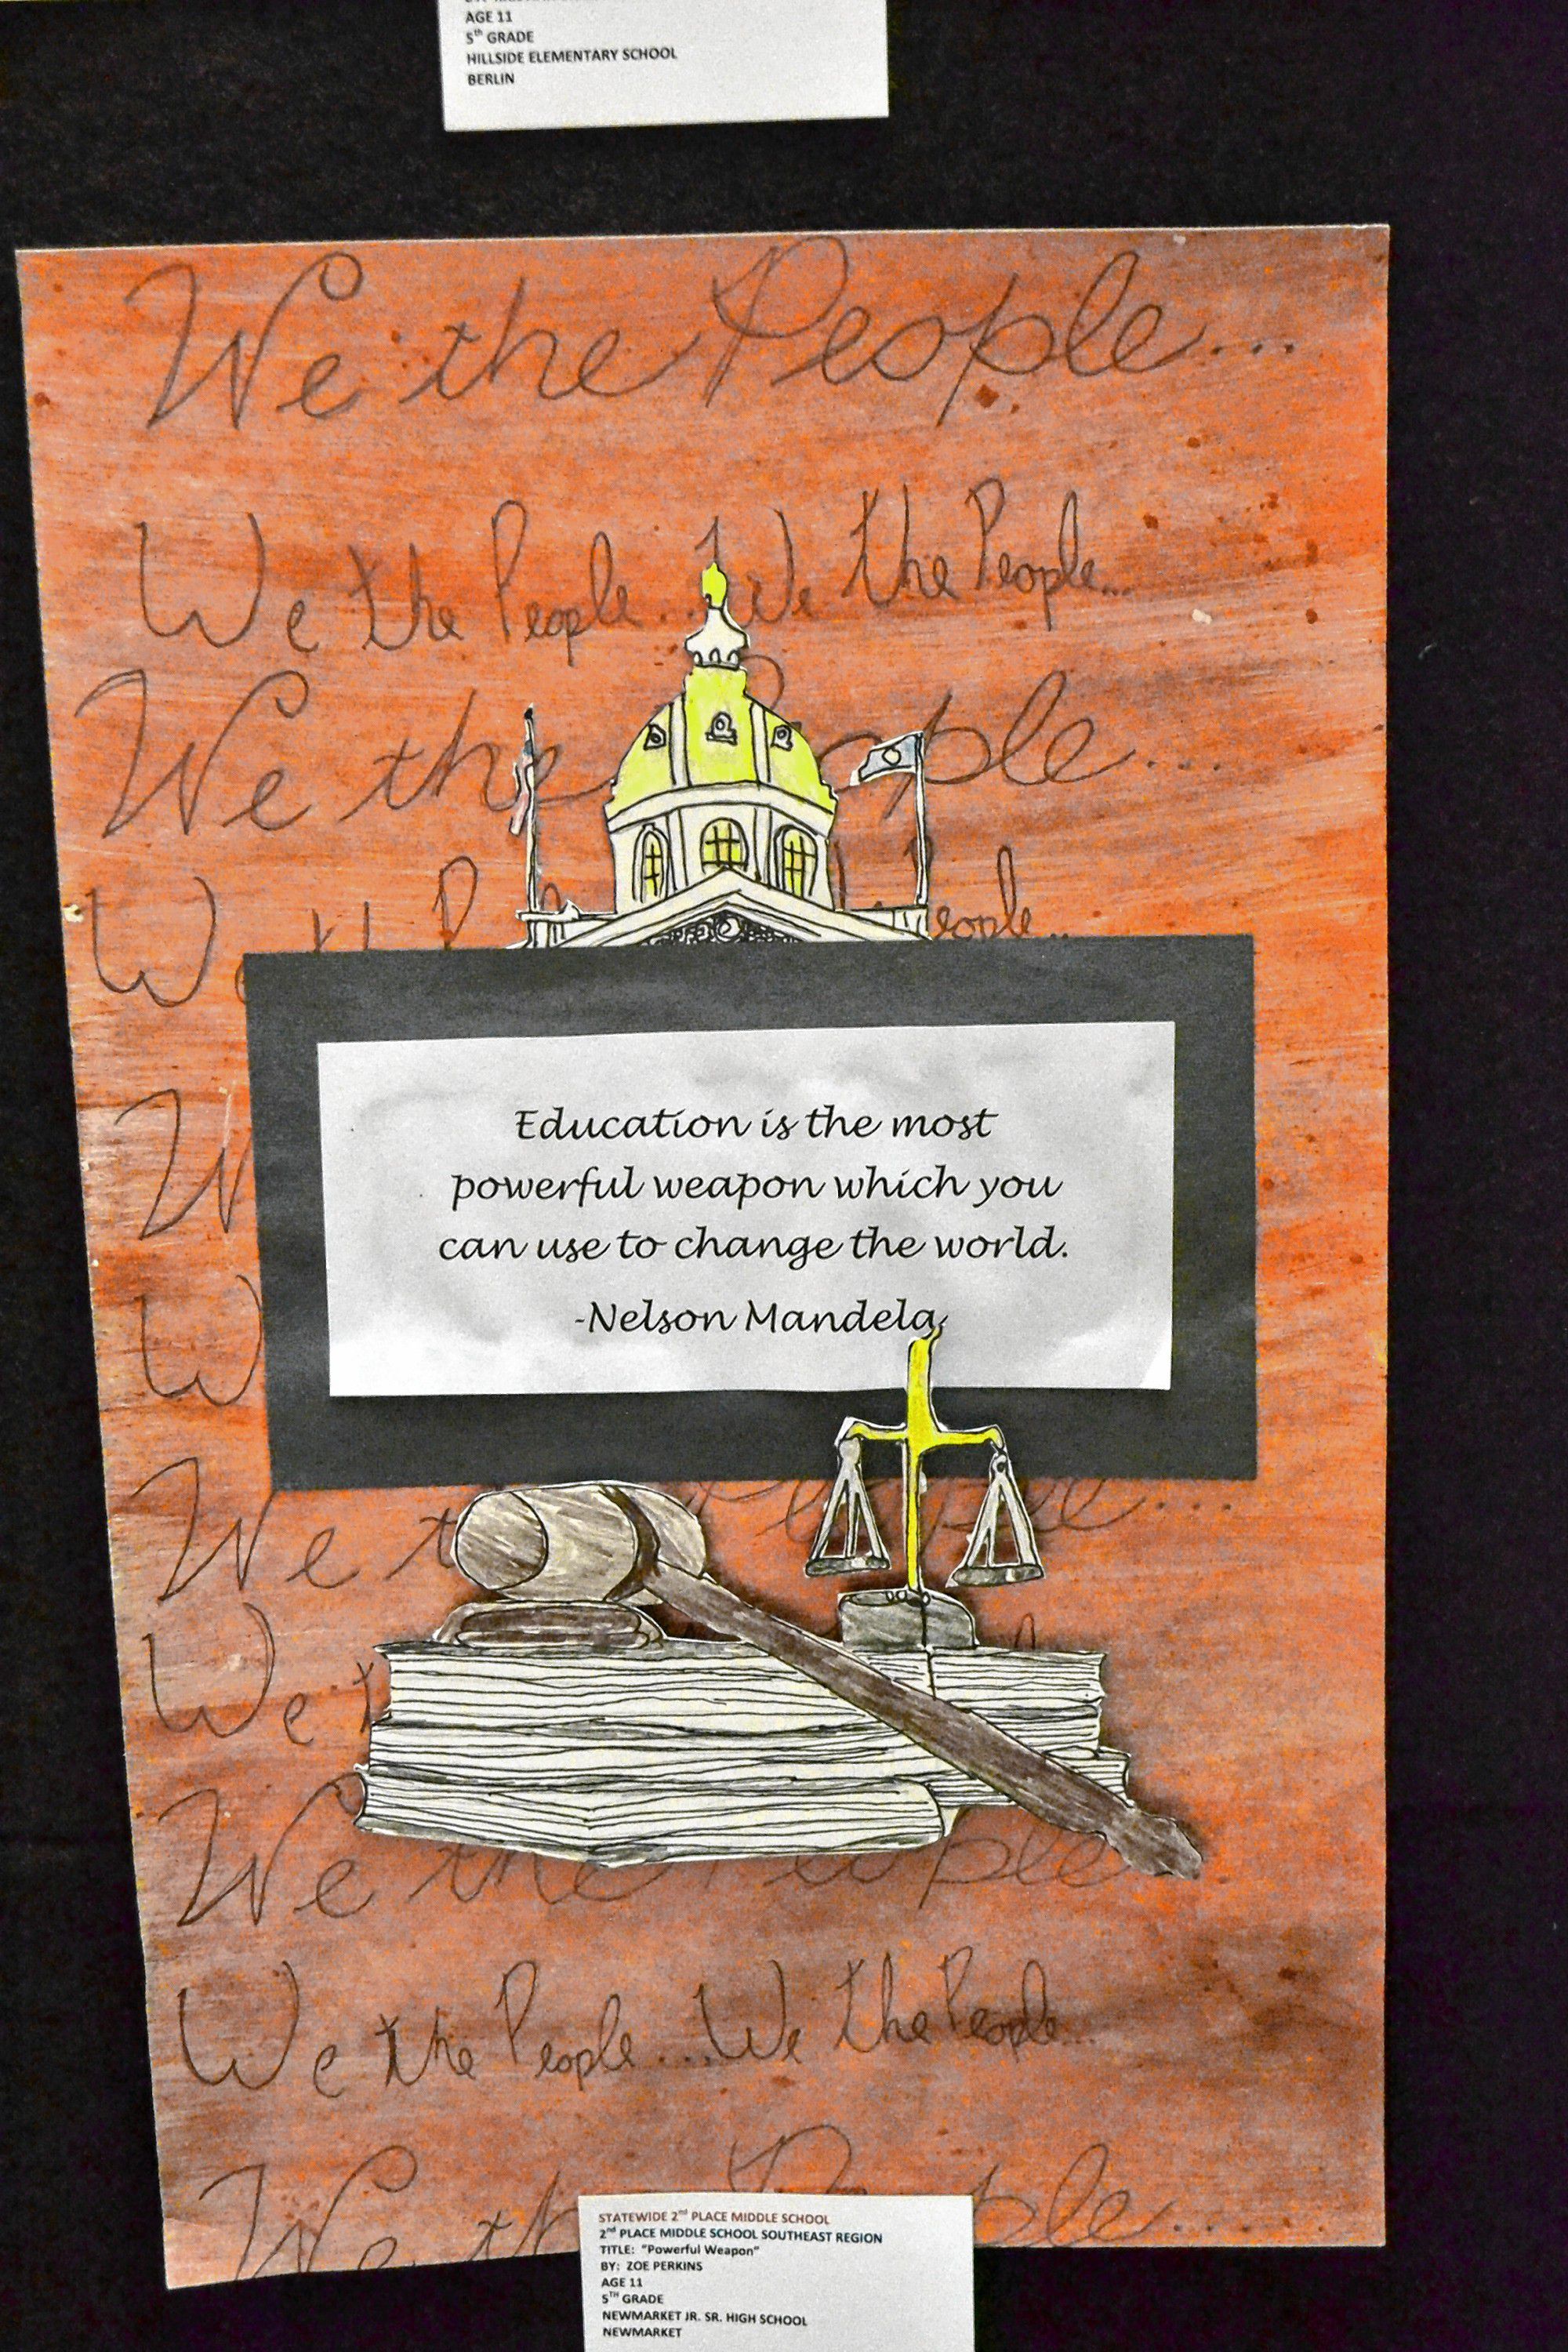 AGE 11
5th GRADE
HILLSIDE ELEMENTARY SCHOOL
BERLIN
We the People...
We the People... We the People...
We the People...
We eople...
Education is the most
powerful weapon which you
can use to change the world.
-Nelson Mandela
We
We
We the People
We the People.... We the People...
We the People.....
STATEWIDE 2nd PLACE MIDDLE SCHOOL
2nd PLACE MIDDLE SCHOOL SOUTHEAST REGION
TITLE: "Powerful Weapon"
BY: ZOE PERKINS
AGE 11
5TH GRADE
NEWMARKET JR. SR. HIGH SCHOOL
NEWMARKET